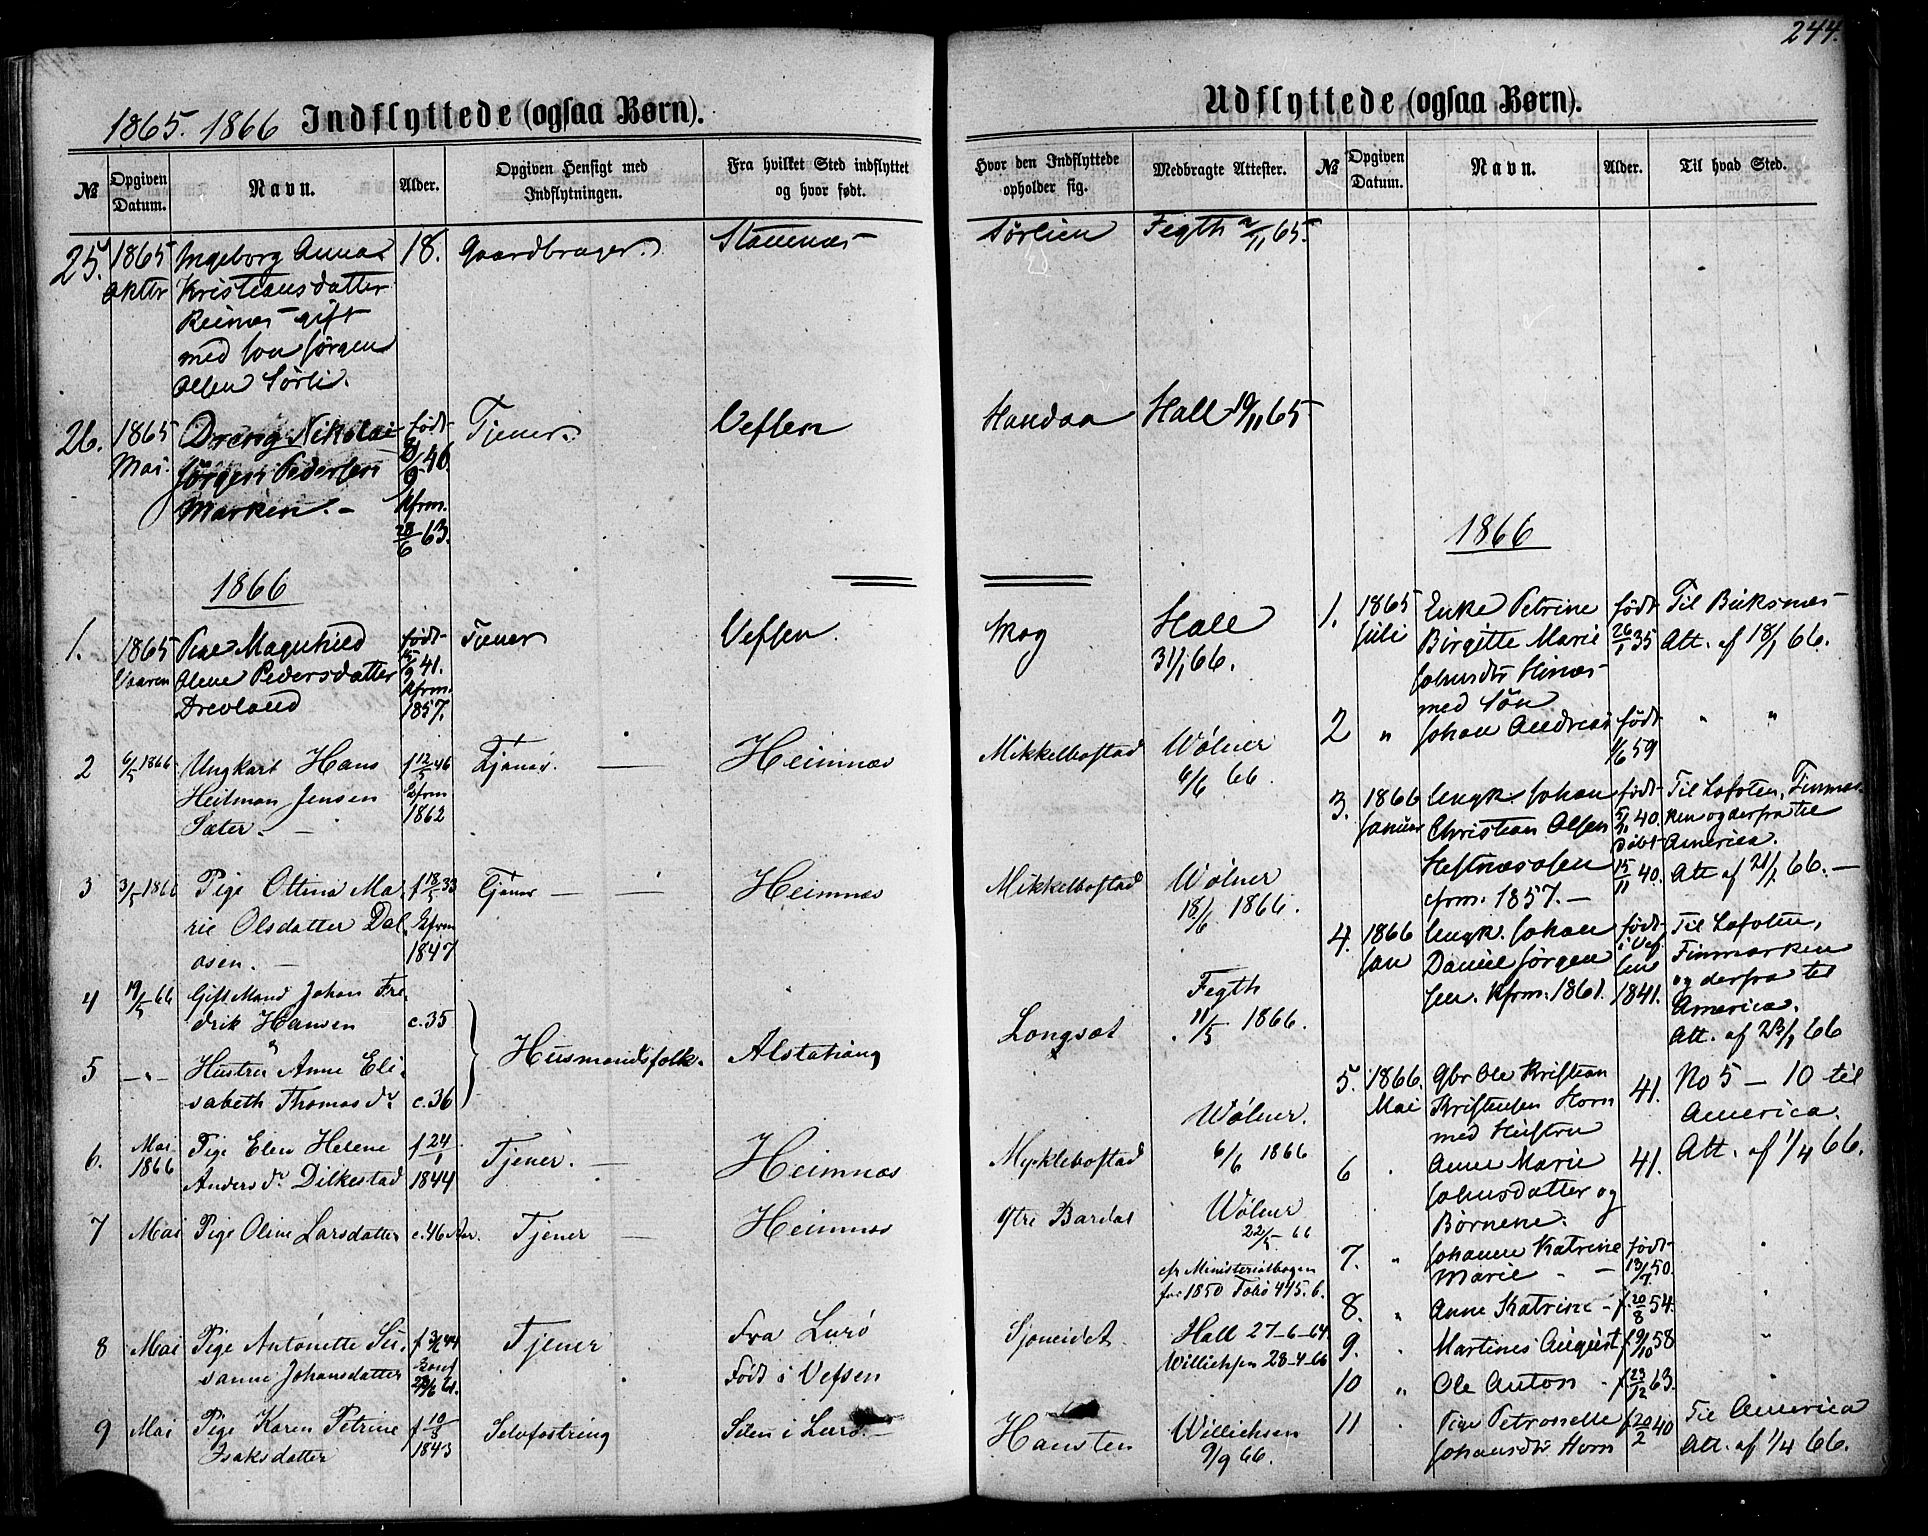 244.
1865. 1866 Indflyttede (ogsaa Børn).
№
Opgiven Datum.
Navn.
Alder.
Opgiven Hensigt med
Indflytningen.
Fra hvilket Sted indflyttet
og hvor født.
Hvor den Indflyttede
opholder sig.
Medbragte Attester.
25. 1865 Ingeborg Anna 18. Gaardbruger. Sørlien Fegth 2/11 65.
Kristiansdatter
Reines gift
med
Olsen Sørli.
26. 1865 Dreng Nikolai født Tjener. Vefsen Handaa Hall 19/11 65
Mai. Jørgen Pedersen 9 46.
Marken. kfrm.
28/6 63.
1866
1. 1865 Pige Magnhild født Tjener Vefsen. Skog Hall
Vaaren Olene Pedersdatter 15/9 41. 31/1 66.
Drevland kfrm.
1857.
2 6/5 1866 Ungkarl Hans f 12/5 46 Tjener Heimnæs Mikkelbostad Wölner
Heilman Jensen kfrm 6/6 66.
Sæter. 1862
3 3/5 1866 Pige Ottina Ma- f 18/5 33 Tjener Heimnæs Mikkelbostad Wölner
rie Olsdatter Dal- kfrm 18/6 1866.
osen. 1847
4 19/5 66 Gift Mand Johan Fre- Fegth
drik Hansen c. 35 Langsæt 11/5 1866.
&
5 " Hustru Anne Eli- Husmandsfolk. Alstahaug
sabeth Thomasdr c. 36
6. Mai Pige Elen Helene f 24/1 Tjener. Heimnæs Mycklebostad Wölner.
1866 Andersdr Dilkestad 1844 6/6 1866
7 Mai Pige Oline Larsdatter c. 46 Aar. Tjener Heimnæs Ytre Bardal Wölner
22/5 66
cfr Ministerialbogen
for 1850 Folio 445. 6.
8 Mai Pige Antonette Su- Tjener Fra Lurö Sjoneidet. Hall 27-6-64
sanne Johansdatter Født i Vefsen Willichsen 28-4-66
9 Mai Pige Karen Petrine f 10/8 Selvfostring i Lurö. Hansten Willichsen
Isaksdatter 1843 9/9 66.
Udflyttede (ogsaa Børn).
№
Opgiven Datum.
Navn.
Alder.
Til hvad Sted.
1866
1. 1865 Enke Petrine født Til Buksnæs
Juli Birgitte Marie 26/1 35 Att. af 18/1 66.
Johnsdtr
med Søn
2 " Johan Andreas født " "
1/6 59
3. 1866 Ungk. Johan født Til Lofoten, Finmar-
Januar Christian Olsen 5/11 40. ken og derfra til
døbt America.
15/11 40. Att af 21/1 66.
cfrm. 1857.
4. 1866 Ungk. Johan født Til Lofoten,
Jan Daniel Jørgen i Vef Finmarken
sen. kfrm. 1861. sen og derfra til
1841. America.
Att. af 23/1 66
5. 1866. Gbr Ole Kristian 41. No 5 - 10 til
Mai Kristensen Horn America.
med Hustru
6 " Anne Marie 41. Att. af 1/4 66.
Johnsdatter og
Børnene.
7. " Johanne Katrine født
Marie 13/7 50.
8. " Anne Katrine f. 20/8 54.
9. Martines August f 9/10 58
10 " Ole Anton f 23/12 63.
11 Pige Petronelle f 20/2 40 Til America
Johansdtr Horn Att. af 1/4 66.